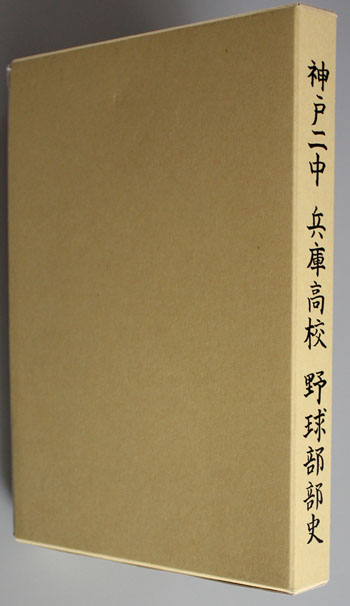 神戸二中 兵庫高校 野球部部史